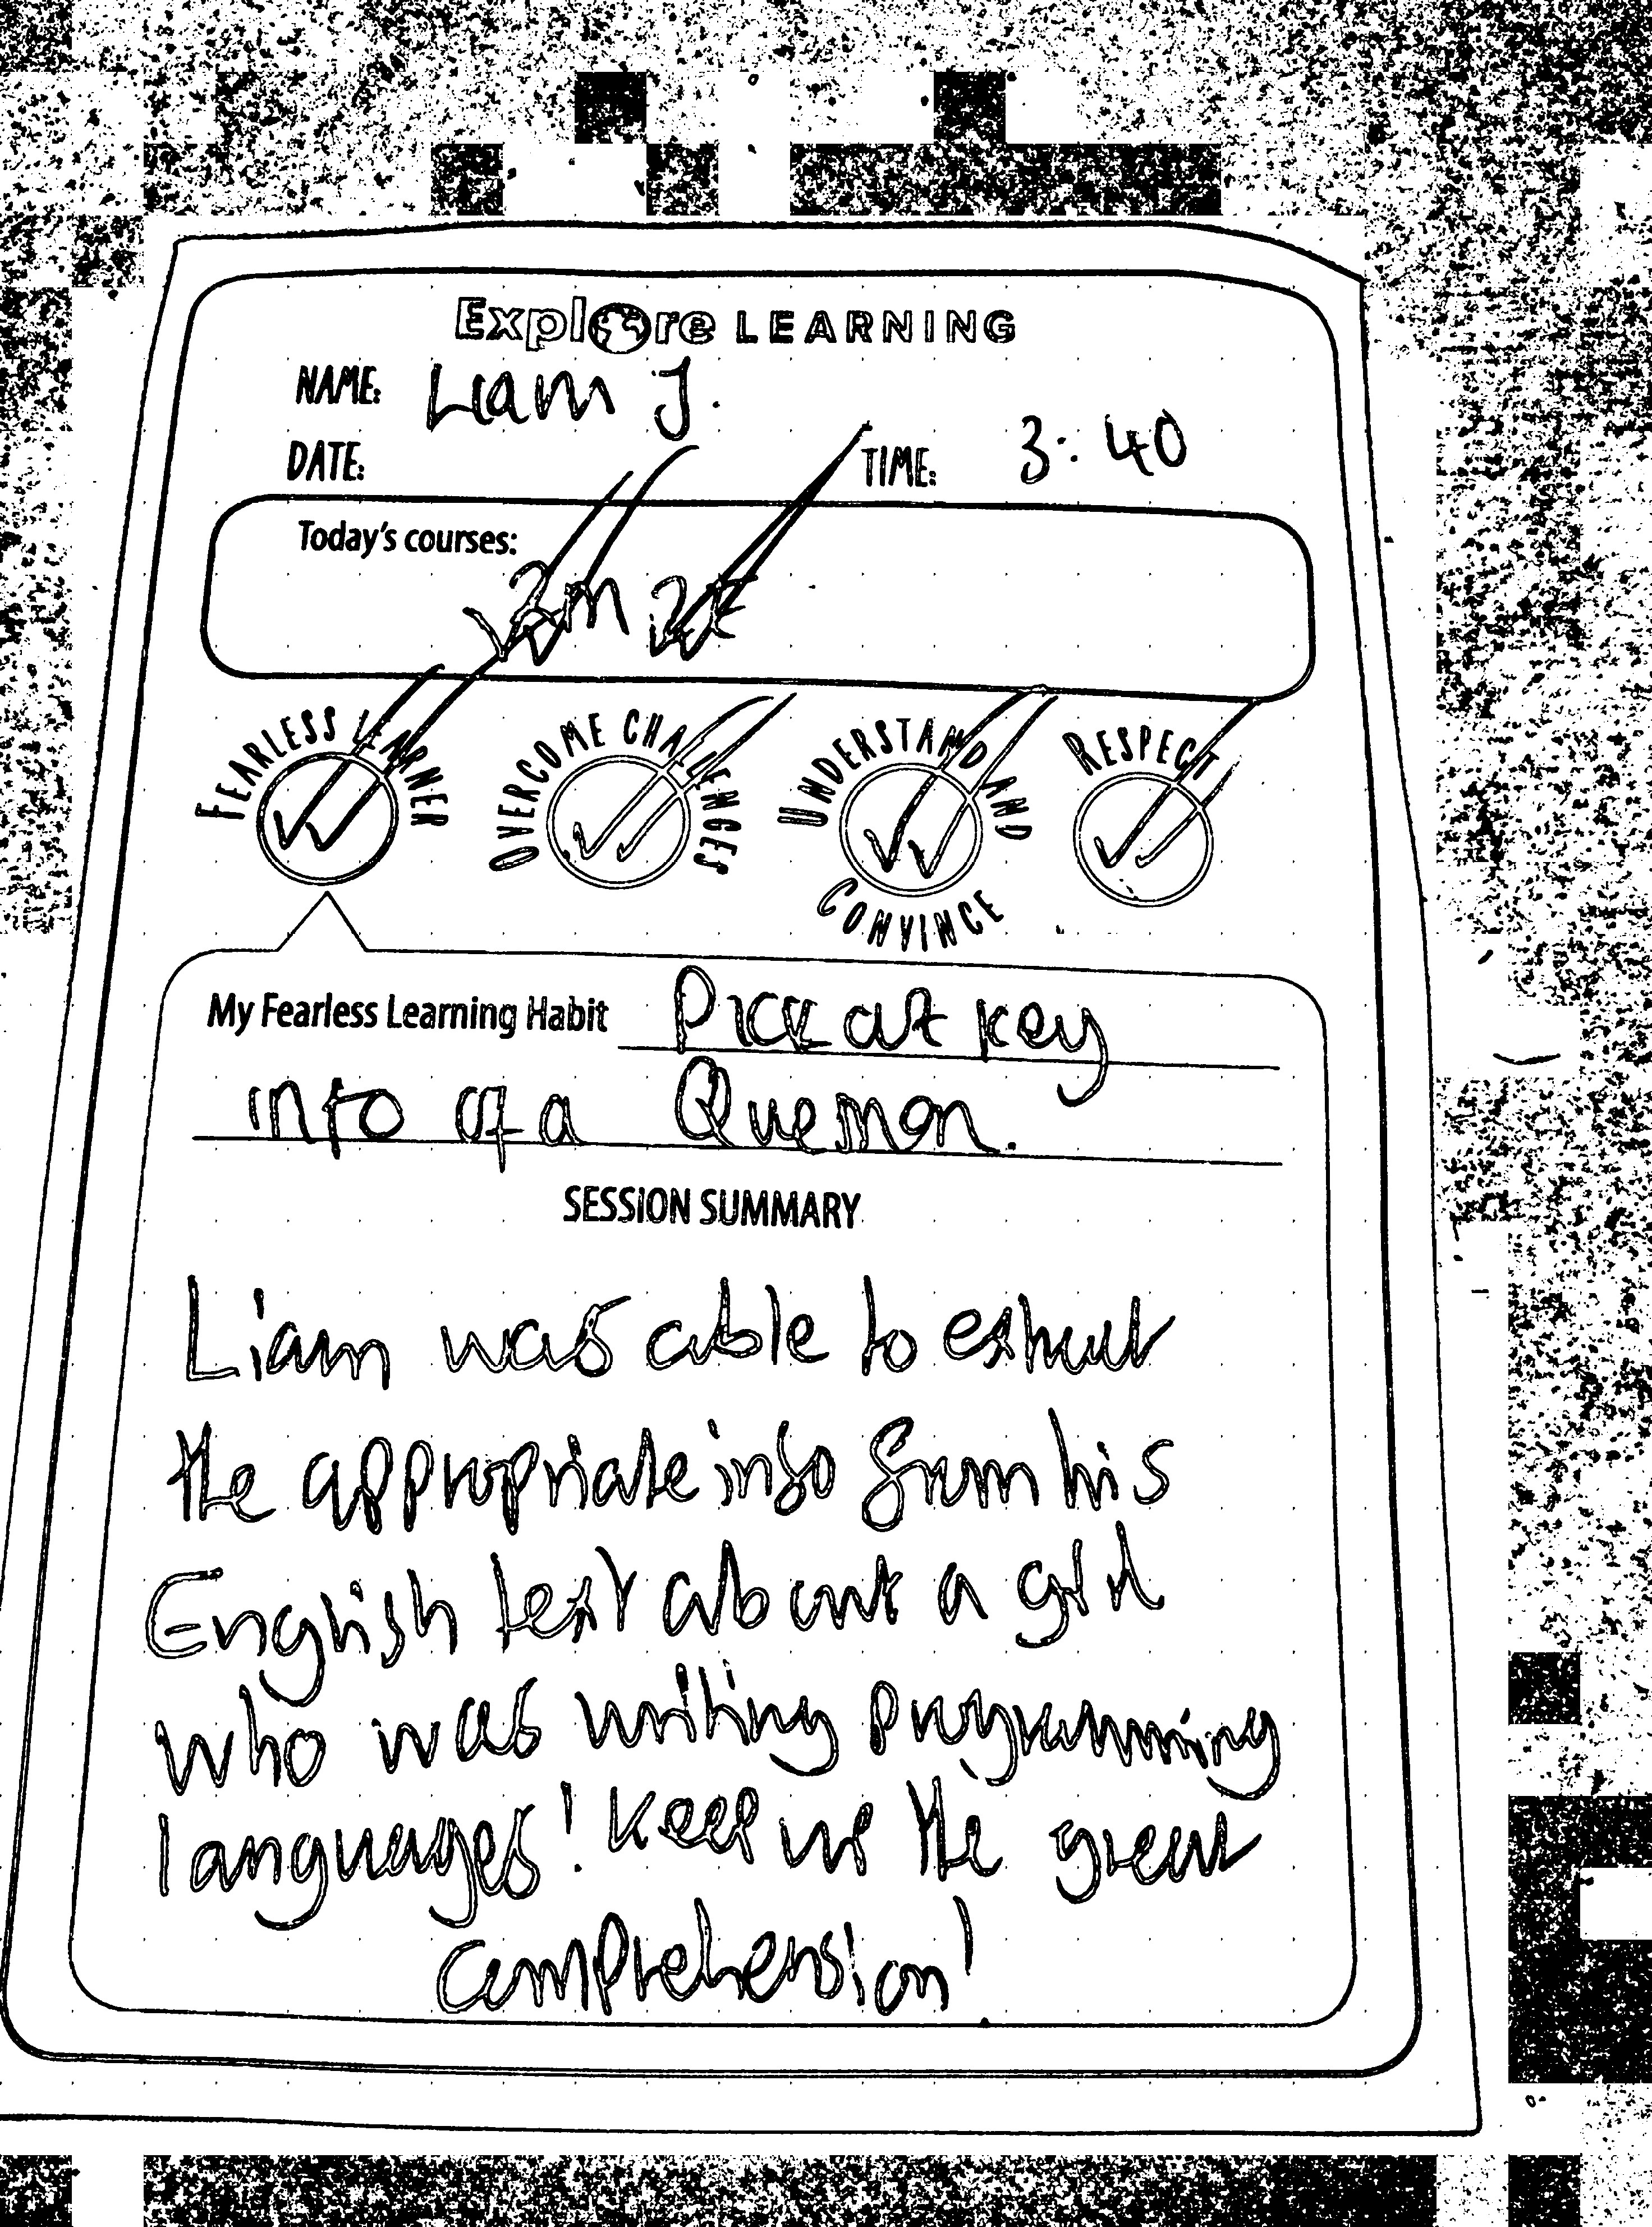 Explore LEARNING
NAME: Liam J.
DATE: TIME: 3:40
Today's courses:
2m 2E
FEARLESS LEARNER
OVERCOME CHALLENGES
UNDERSTAND AND CONVINCE
RESPECT
My Fearless Learning Habit Pick out key
info of a Question.
SESSION SUMMARY
Liam was able to extract
the appropriate info from his
English text about a girl
who was writing programming
languages! Keep up the great
comprehension!